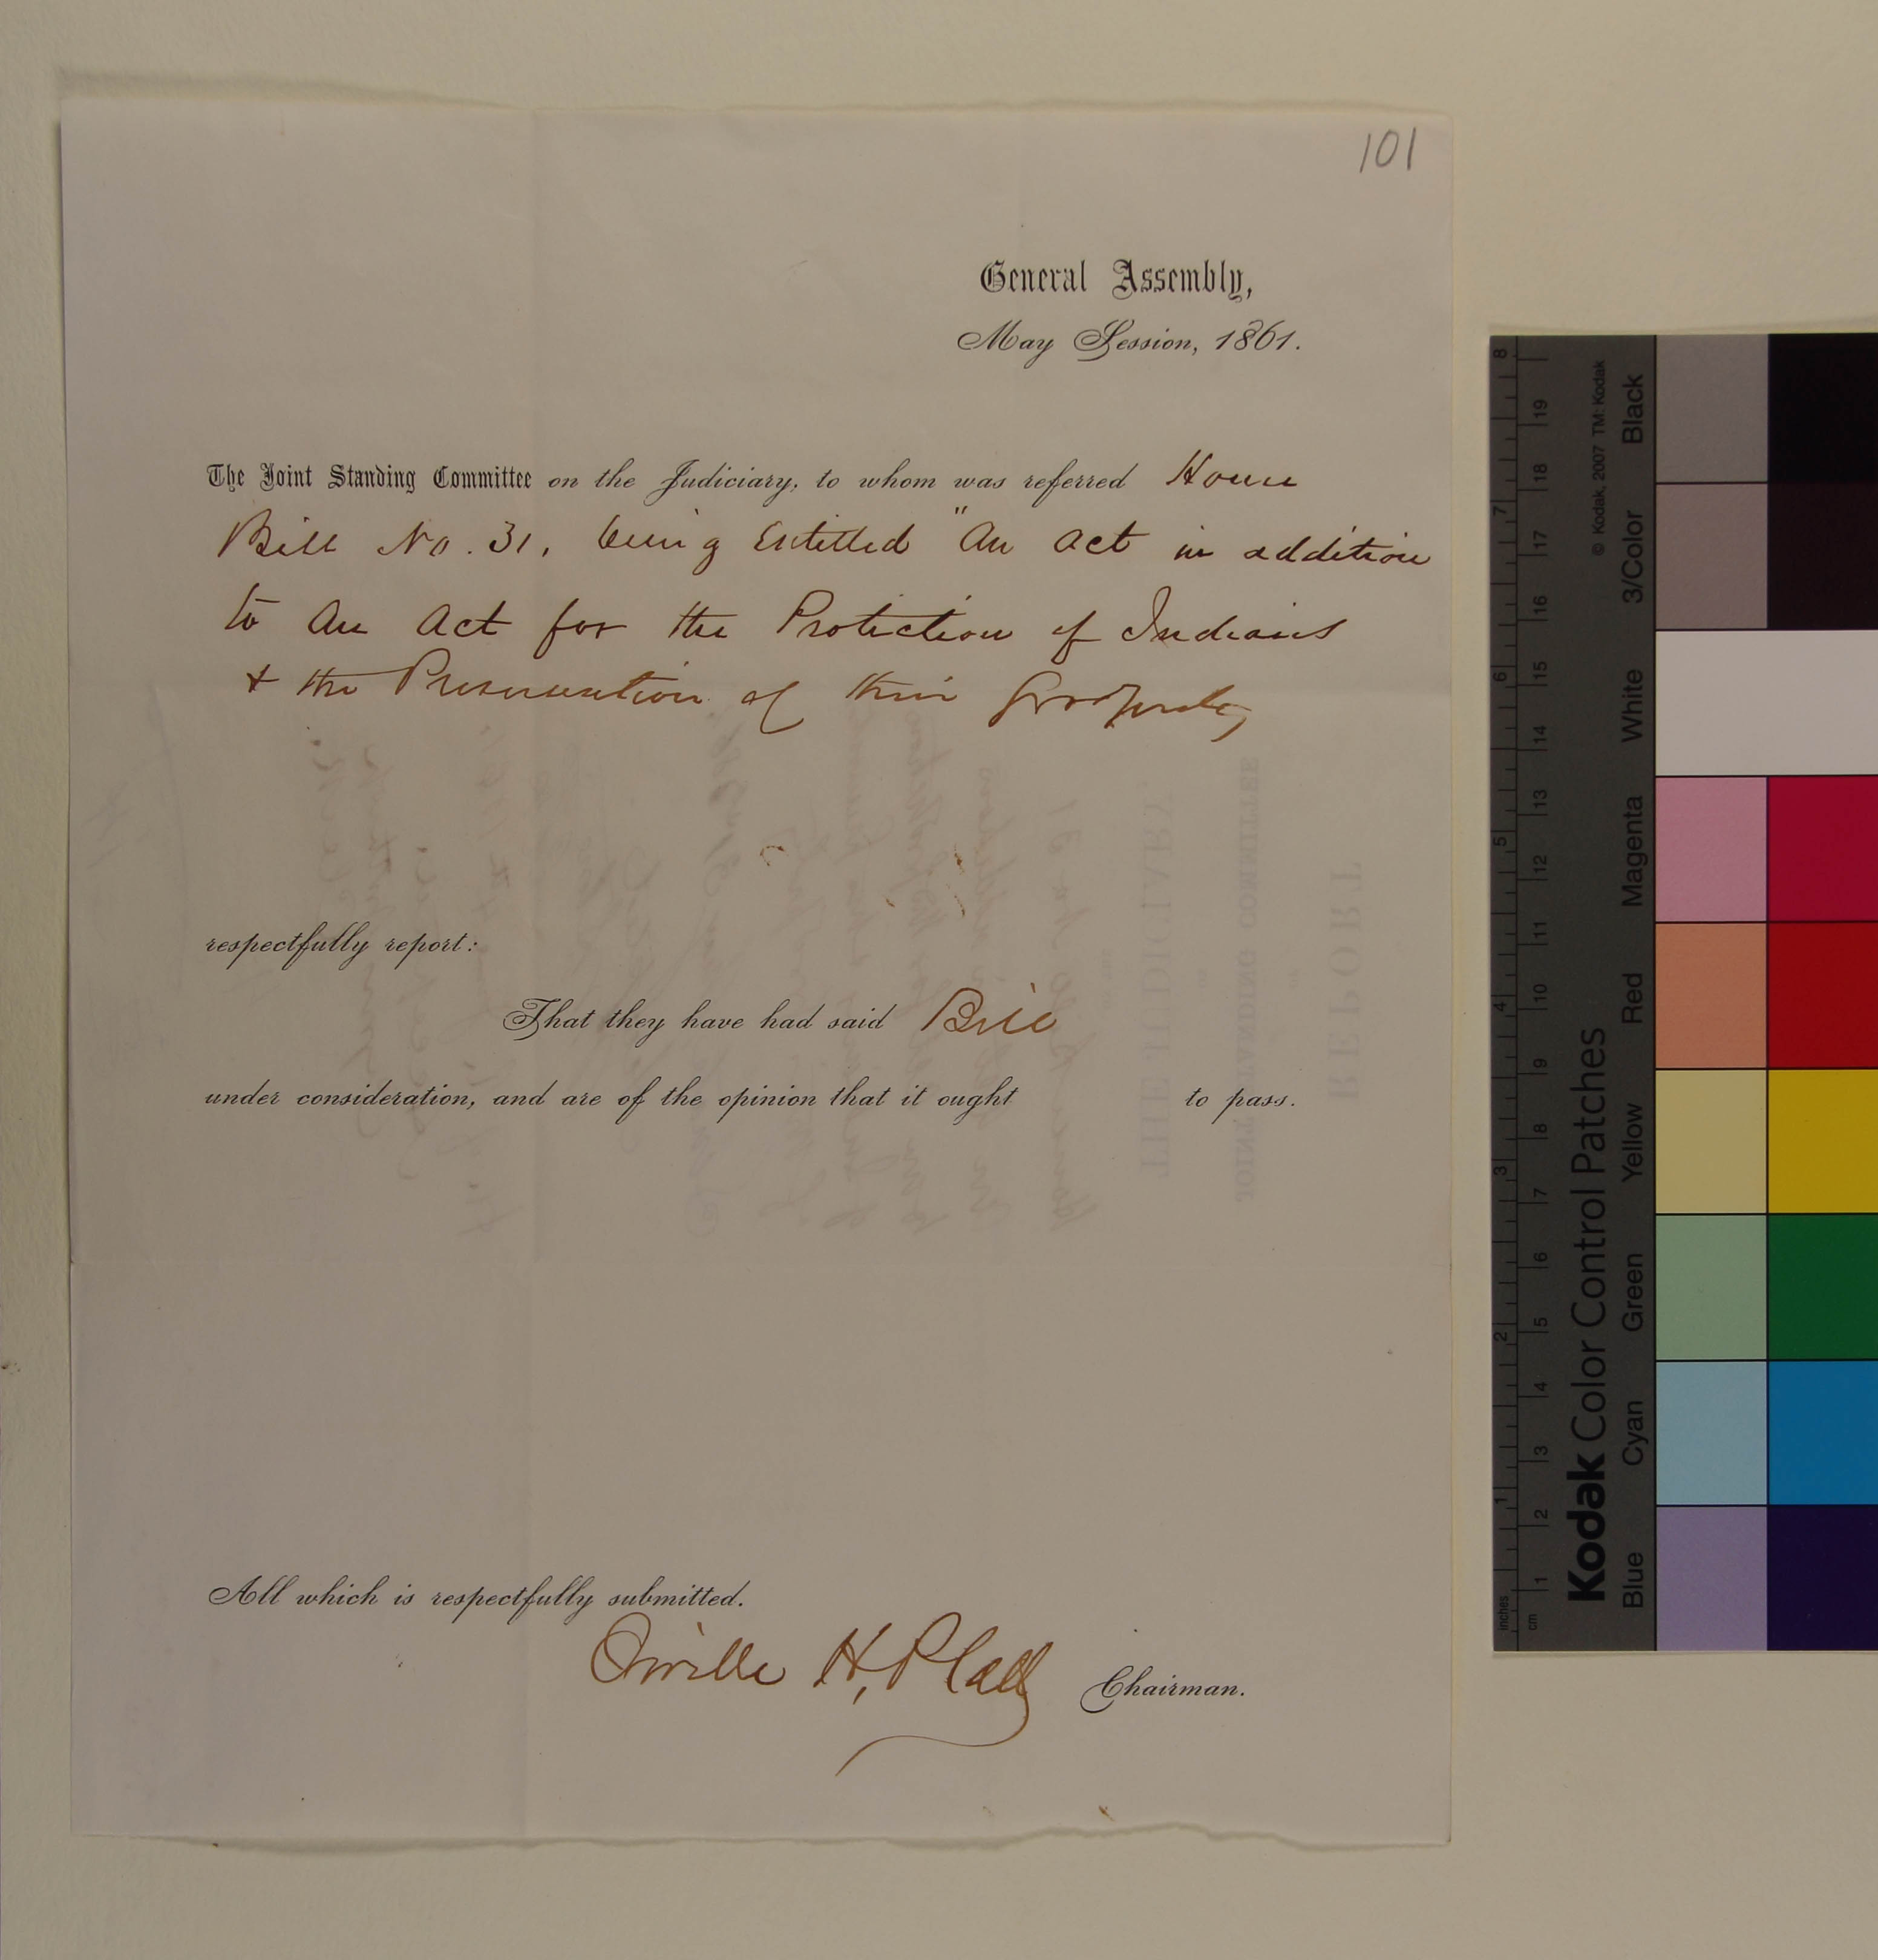 101
General Assembly,
May Session, 1861.
The Joint Standing Committee on the Judiciary, to whom was referred House
Bill No. 31, being Entitled "An Act in addition
to An Act for the Protection of Indians
& the Preservation of their Property
respectfully report:
That they have had said Bill
under consideration, and are of the opinion that it ought to pass.
All which is respectfully submitted.
Orville H, Platt Chairman.
REPORT
JOINT STANDING COMMITTEE
THE JUDICIARY,
© Kodak, 2007 TM: Kodak
Kodak Color Control Patches
Blue Cyan Green Yellow Red Magenta White 3/Color Black
inches 1 2 3 4 5 6 7 8
cm 1 2 3 4 5 6 7 8 9 10 11 12 13 14 15 16 17 18 19